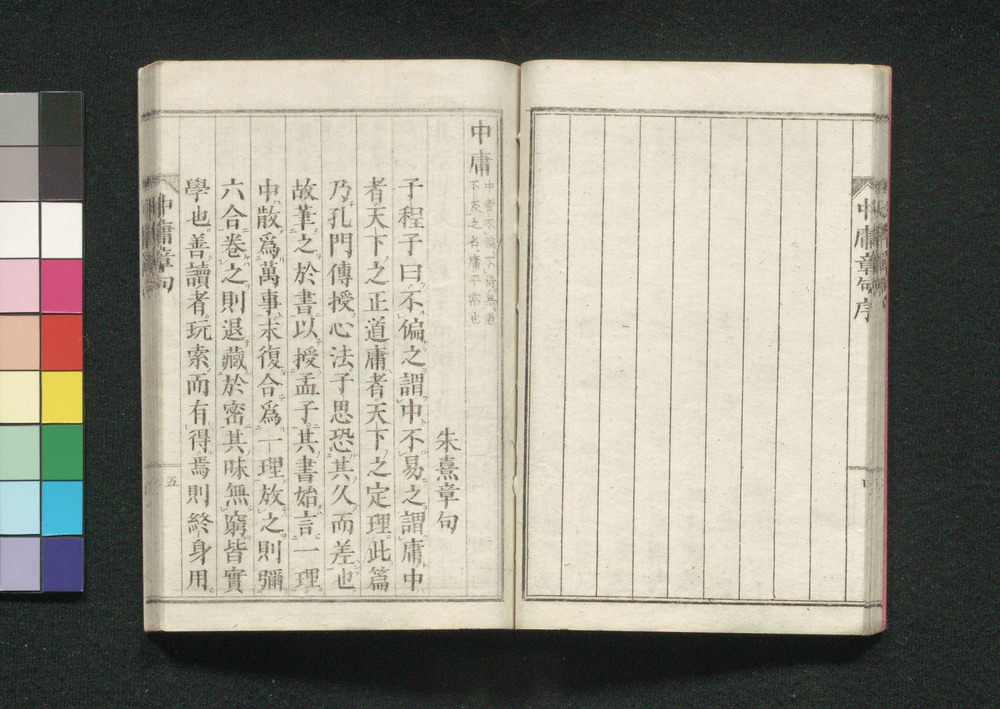 中庸章句序
中庸
中者不偏不倚無過
不及之名庸平常也
朱熹章句
子程子曰不偏之謂中不易之謂庸中
者天下之正道庸者天下之定理此篇
乃孔門傳授心法子思恐其久而差也
故筆之於書以授孟子其書始言一理
中散爲萬事末復合爲一理放之則彌
六合卷之則退藏於密其味無窮皆實
學也善讀者玩索而有得焉則終身用
中庸章句
五